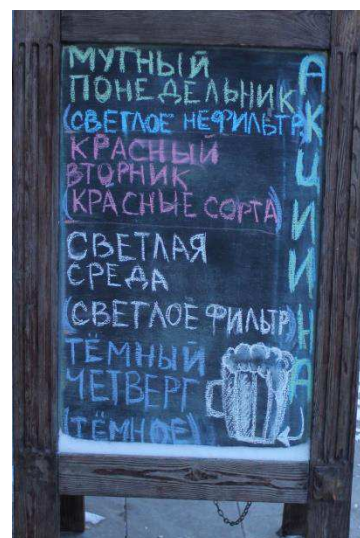 МУТНЫЙ
ПОНЕДЕЛЬНИК
(СВЕТЛОЕ НЕФИЛЬТР)
КРАСНЫЙ
ВТОРНИК
(КРАСНЫЕ СОРТА)
СВЕТЛАЯ
СРЕДА
(СВЕТЛОЕ ФИЛЬТР)
ТЁМНЫЙ
ЧЕТВЕРГ
(ТЁМНОЕ)
АКЦИИ НА